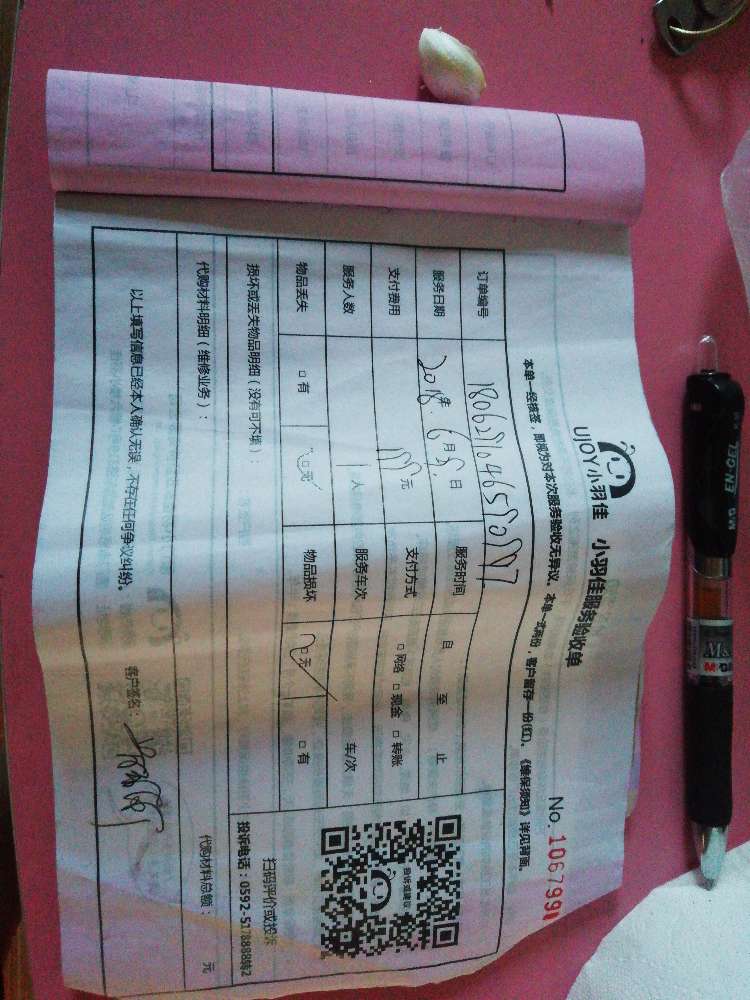 UJOY小羽佳 小羽佳服务验收单
No. 1067991
本单一经核签，即视为对本次服务验收无异议。本单一式两份，客户留存一份(红)。《维保须知》详见背面。
订单编号
服务日期 2018年 6月 日 服务时间 自 至 止
支付费用 元 支付方式 □网络 □现金 □转账
服务人数 1人 服务车次 车/次
物品丢失 □有 □无 物品损坏 □无 □有
损坏或丢失物品明细（没有可不填）：
代购材料明细（维修业务）： 代购材料总额： 元
以上填写信息已经本人确认无误，不存在任何争议纠纷。 客户签名：
扫码评价或投诉
投诉电话：0592-5178888转2
EN-GEL
M&G